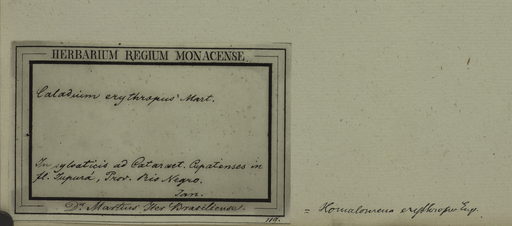 HERBARIUM REGIUM MONACENSE.
Caladium erythropus Mart.
In sylvaticis ad Cataract. Cupatenses in
fl. Japurá, Prov. Rio Negro.
Jan.
Dr. Martius Iter Brasiliense
= Homalomena erythropus Eng.